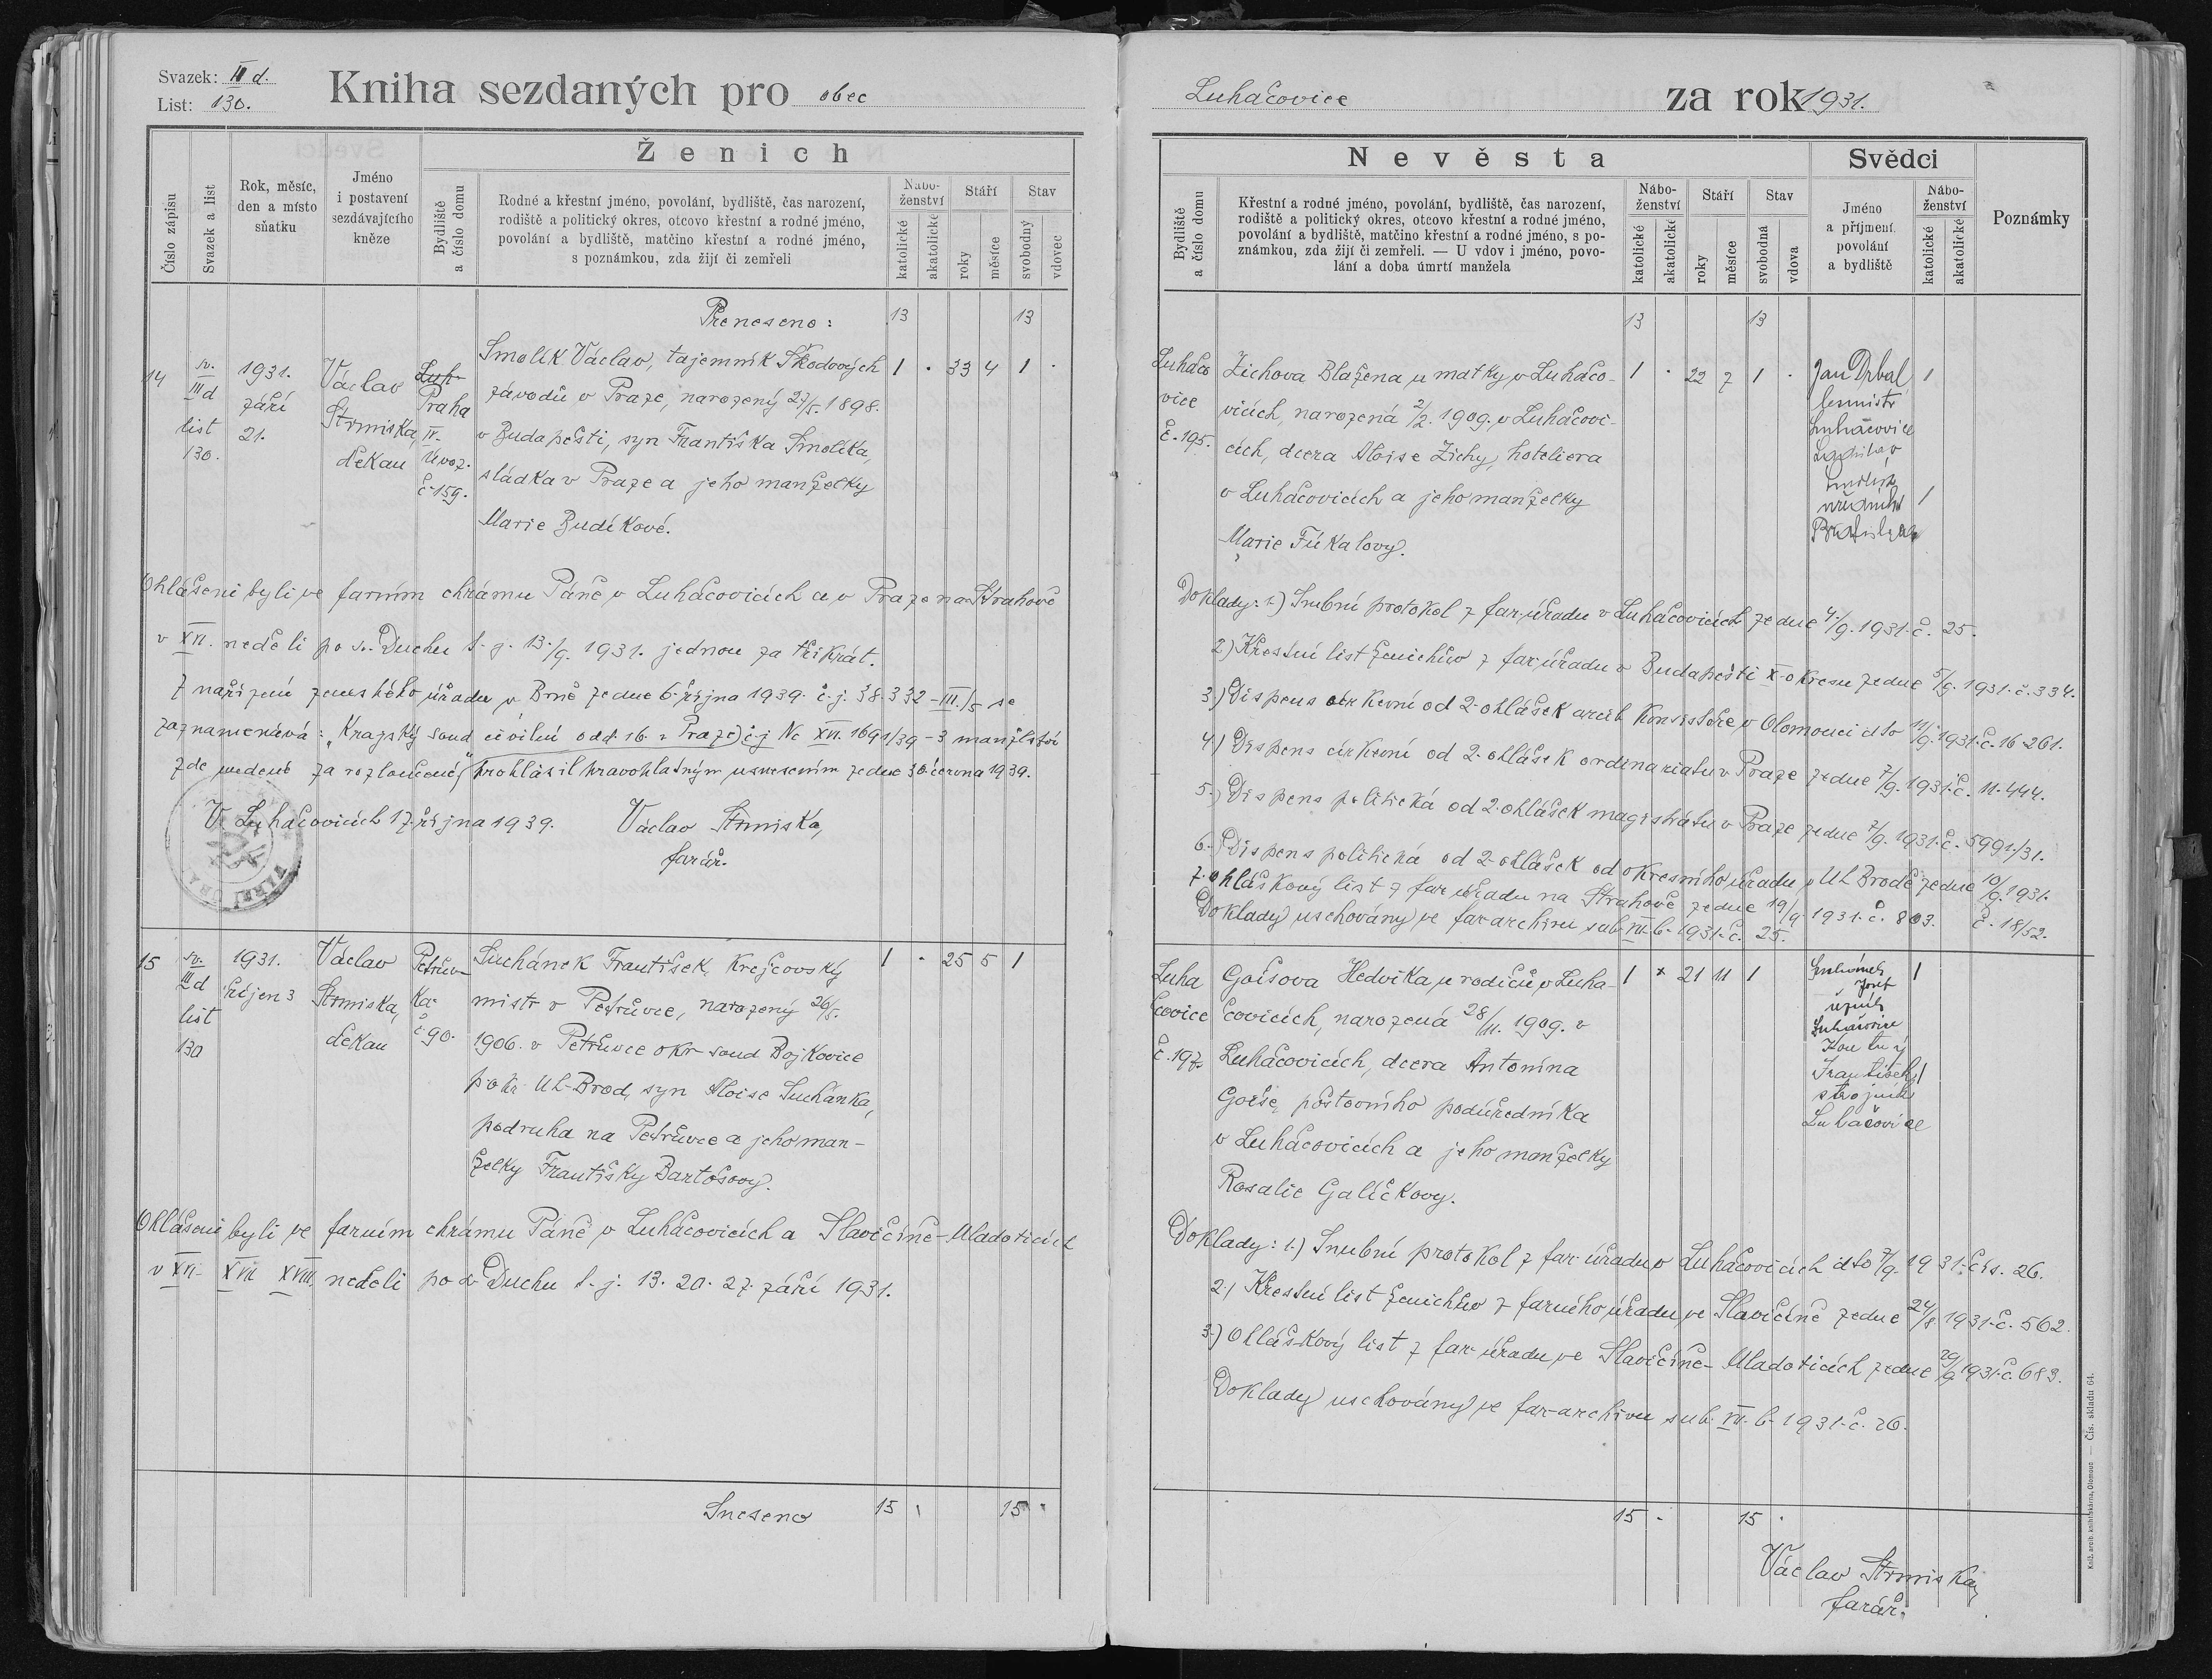 Svazek: III d.
List: 130.
Kniha sezdaných pro obec
Číslo zápisu
Svazek a list
Rok, měsíc,
den a místo
sňatku
Jméno
i postavení
sezdávajícího
kněze
Ženich
Bydliště
a číslo domu
Rodné a křestní jméno, povolání, bydliště, čas narození,
rodiště a politický okres, otcovo křestní a rodné jméno,
povolání a bydliště, matčino křestní a rodné jméno,
s poznámkou, zda žijí či zemřeli
Nábo-
ženství
katolické
akatolické
Stáří
roky
měsíce
Stav
svobodný
vdovec
Přeneseno: 13 13
14
sv.
III d
list
130.
1931.
září
21.
Václav
Strmiska,
děkan
Luh-
Praha
IV.
Úvoz.
č. 159.
Smolík Václav, tajemník Škodových
závodů v Praze, narozený 27/5. 1898.
v Budapešti, syn Františka Smolíka,
sládka v Praze a jeho manželky
Marie Budíkové.
1 . 33 4 1 .
Ohlášeni byli ve farním chrámu Páně v Luhačovicích a v Praze na Strahově
v XVI. neděli po sv. Duchu t. j. 13./9. 1931. jednou za třikrát.
Z nařízení zemského úřadu v Brně ze dne 6. října 1939. č. j. 38.332-III./5 se
zaznamenává: „Krajský soud civilní odd. 16. v Praze) č. j. Nc XVI. 1691/39-3 manželství
zde uvedené za rozloučené," prohlásil pravoplatným usnesením ze dne 30. června 1939.
V Luhačovicích 17. října 1939. Václav Strmiska,
farář.
15
sv.
III d
list
130
1931.
říjen 3
Václav
Strmiska,
děkan
Petrův-
ka.
č. 90.
Suchánek František, krejčovský
mistr v Petrůvce, narozený 26/5.
1906. v Petrůvce okr. soud Bojkovice
p. okr. Uh-Brod, syn Aloise Suchánka,
podruha na Petrůvce a jeho man-
želky Františky Bartošovy.
1 . 25 5 1
Ohlášeni byli ve farním chrámu Páně v Luhačovicích a Slavičíně-Mladoticích
v XVI. XVII. XVIII. neděli po sv. Duchu t. j. 13. 20. 27. září 1931.
Sneseno 15 . 15 .
Luhačovice
za rok 1931.
Nevěsta
Bydliště
a číslo domu
Křestní a rodné jméno, povolání, bydliště, čas narození,
rodiště a politický okres, otcovo křestní a rodné jméno,
povolání a bydliště, matčino křestní a rodné jméno, s po-
známkou, zda žijí či zemřeli. — U vdov i jméno, povo-
lání a doba úmrtí manžela
Nábo-
ženství
katolické
akatolické
Stáří
roky
měsíce
Stav
svobodná
vdova
Svědci
Jméno
a příjmení
povolání
a bydliště
Nábo-
ženství
katolické
akatolické
Poznámky
13 13
Luhačo
vice
č. 195.
Zichova Blažena u matky v Luhačo-
vicích, narozená 2/2. 1909. v Luhačovi-
cích, dcera Aloise Zichy, hoteliera
v Luhačovicích a jeho manželky
Marie Fúkalovy.
1 . 22 7 1 .
Jan Drbal 1
lesmistr
Luhačovice
Ladislav
Smolík
úředník 1
Bratislava
Doklady: 1.) Snubní protokol z far. úřadu v Luhačovicích ze dne 4./9. 1931. č. 25.
2.) Křestní list ženichův z far. úřadu v Budapešti X. okresu ze dne 5/9. 1931. č. 334.
3.) Dispens církevní od 2. ohlášek arcib. konsistoře v Olomouci dto 11/9. 1931. č. 16261.
4.) Dispens církevní od 2. ohlášek ordinariatu v Praze ze dne 7/9. 1931. č. 11.444.
5.) Dispens politická od 2. ohlášek magistrátu v Praze ze dne 7/9. 1931. č. 5991./31.
6.) Dispens politická od 2. ohlášek od okresního úřadu v Uh. Brodě ze dne 10/9. 1931.
č. 18/52.
7. ohláškový list z far. úřadu na Strahově ze dne 19/9 1931. č. 803.
Doklady uschovány ve far. archivu sub. VII. b. 1931. č. 25.
Luha
čovice
č. 197.
Goišova Hedvika, u rodičů v Luha-
čovicích, narozená 28/11. 1909. v
Luhačovicích, dcera Antonína
Goiše, poštovního podúředníka
v Luhačovicích a jeho manželky
Rosalie Galíčkovy.
1 . 21 11 1
Suchánek 1
Josef
řezník
Luhačovice
František 1
strojník
Luhačovice
Doklady: 1.) Snubní protokol z far. úřadu v Luhačovicích dto 7/9. 1931. čís. 26.
2.) Křestní list ženichův z farního úřadu ve Slavičíně ze dne 24/8 1931. č. 562.
3.) Ohláškový list z far. úřadu ve Slavičíně-Mladoticích ze dne 29/9 1931. č. 683.
Doklady uschovány ve far. archivu sub. VII. b. 1931. č. 26.
15 . 15 .
Václav Strmiska,
farář.
Kniž. arcib. knihtiskárna, Olomouc — Čís. skladu 64.